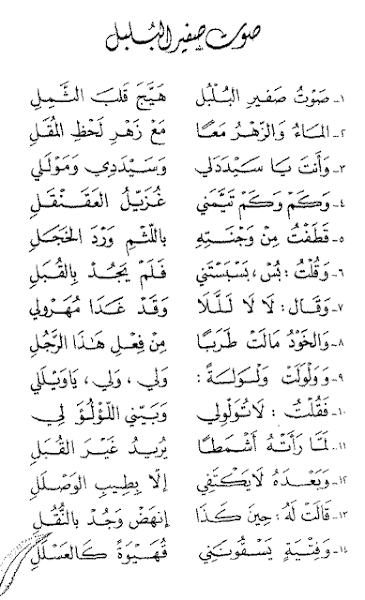 صوت صفير البلبل
١- صَوْتُ صَفِيرِ البُلْبُلِ هَيَّجَ قَلْبَ الثَّمِلِ
٢- المَاءُ وَالزَّهْرُ مَعًا مَعْ زَهْرِ لَحْظِ المُقَلِ
٣- وَأَنْتَ يَا سَيِّدَدَلِي وَسَيِّدَدِي وَمَوْلَلِي
٤- وَكَمْ وَكَمْ تَيَّمَنِي غُزَيِّلُ العَقَنْقَلِ
٥- قَطَفْتُ مِنْ وَجْنَتِهِ بِاللَّثْمِ وَرْدَ الخَجَلِ
٦- وَقُلْتُ : بُسْ، بَسْبَسْتَنِي فَلَمْ يَجُدْ بِالقُبَلِ
٧- وَقَالَ : لَا لَا لَلَلَا وَقَدْ غَدَا مُهَرْوِلِي
٨- وَالخَوْدُ مَالَتْ طَرَبًا مِنْ فِعْلِ هَذَا الرَّجُلِ
٩- وَوَلْوَلَتْ وَلْوَلَةً : وَلِي ، وَلِي ، يَاوَيْلَلِي
١٠- فَقُلْتُ : لَاتُوَلْوِلِي وَبَيِّنِي اللُّؤْلُؤَ لِي
١١- لَمَّا رَأَتْهُ أَشْمَطًا يُرِيدُ غَيْرَ القُبَلِ
١٢- وَبَعْدَهُ لَايَكْتَفِي إلَّا بِطِيبِ الوَصْلَلِ
١٣- قَالَتْ لَهُ : حِينَ كَذَا إنْهَضْ وَجُدْ بِالنُّقَلِ
١٤- وَفِتْيَةٍ يَسْقُونَنِي قُهَيْوَةً كَالعَسْلَلِ